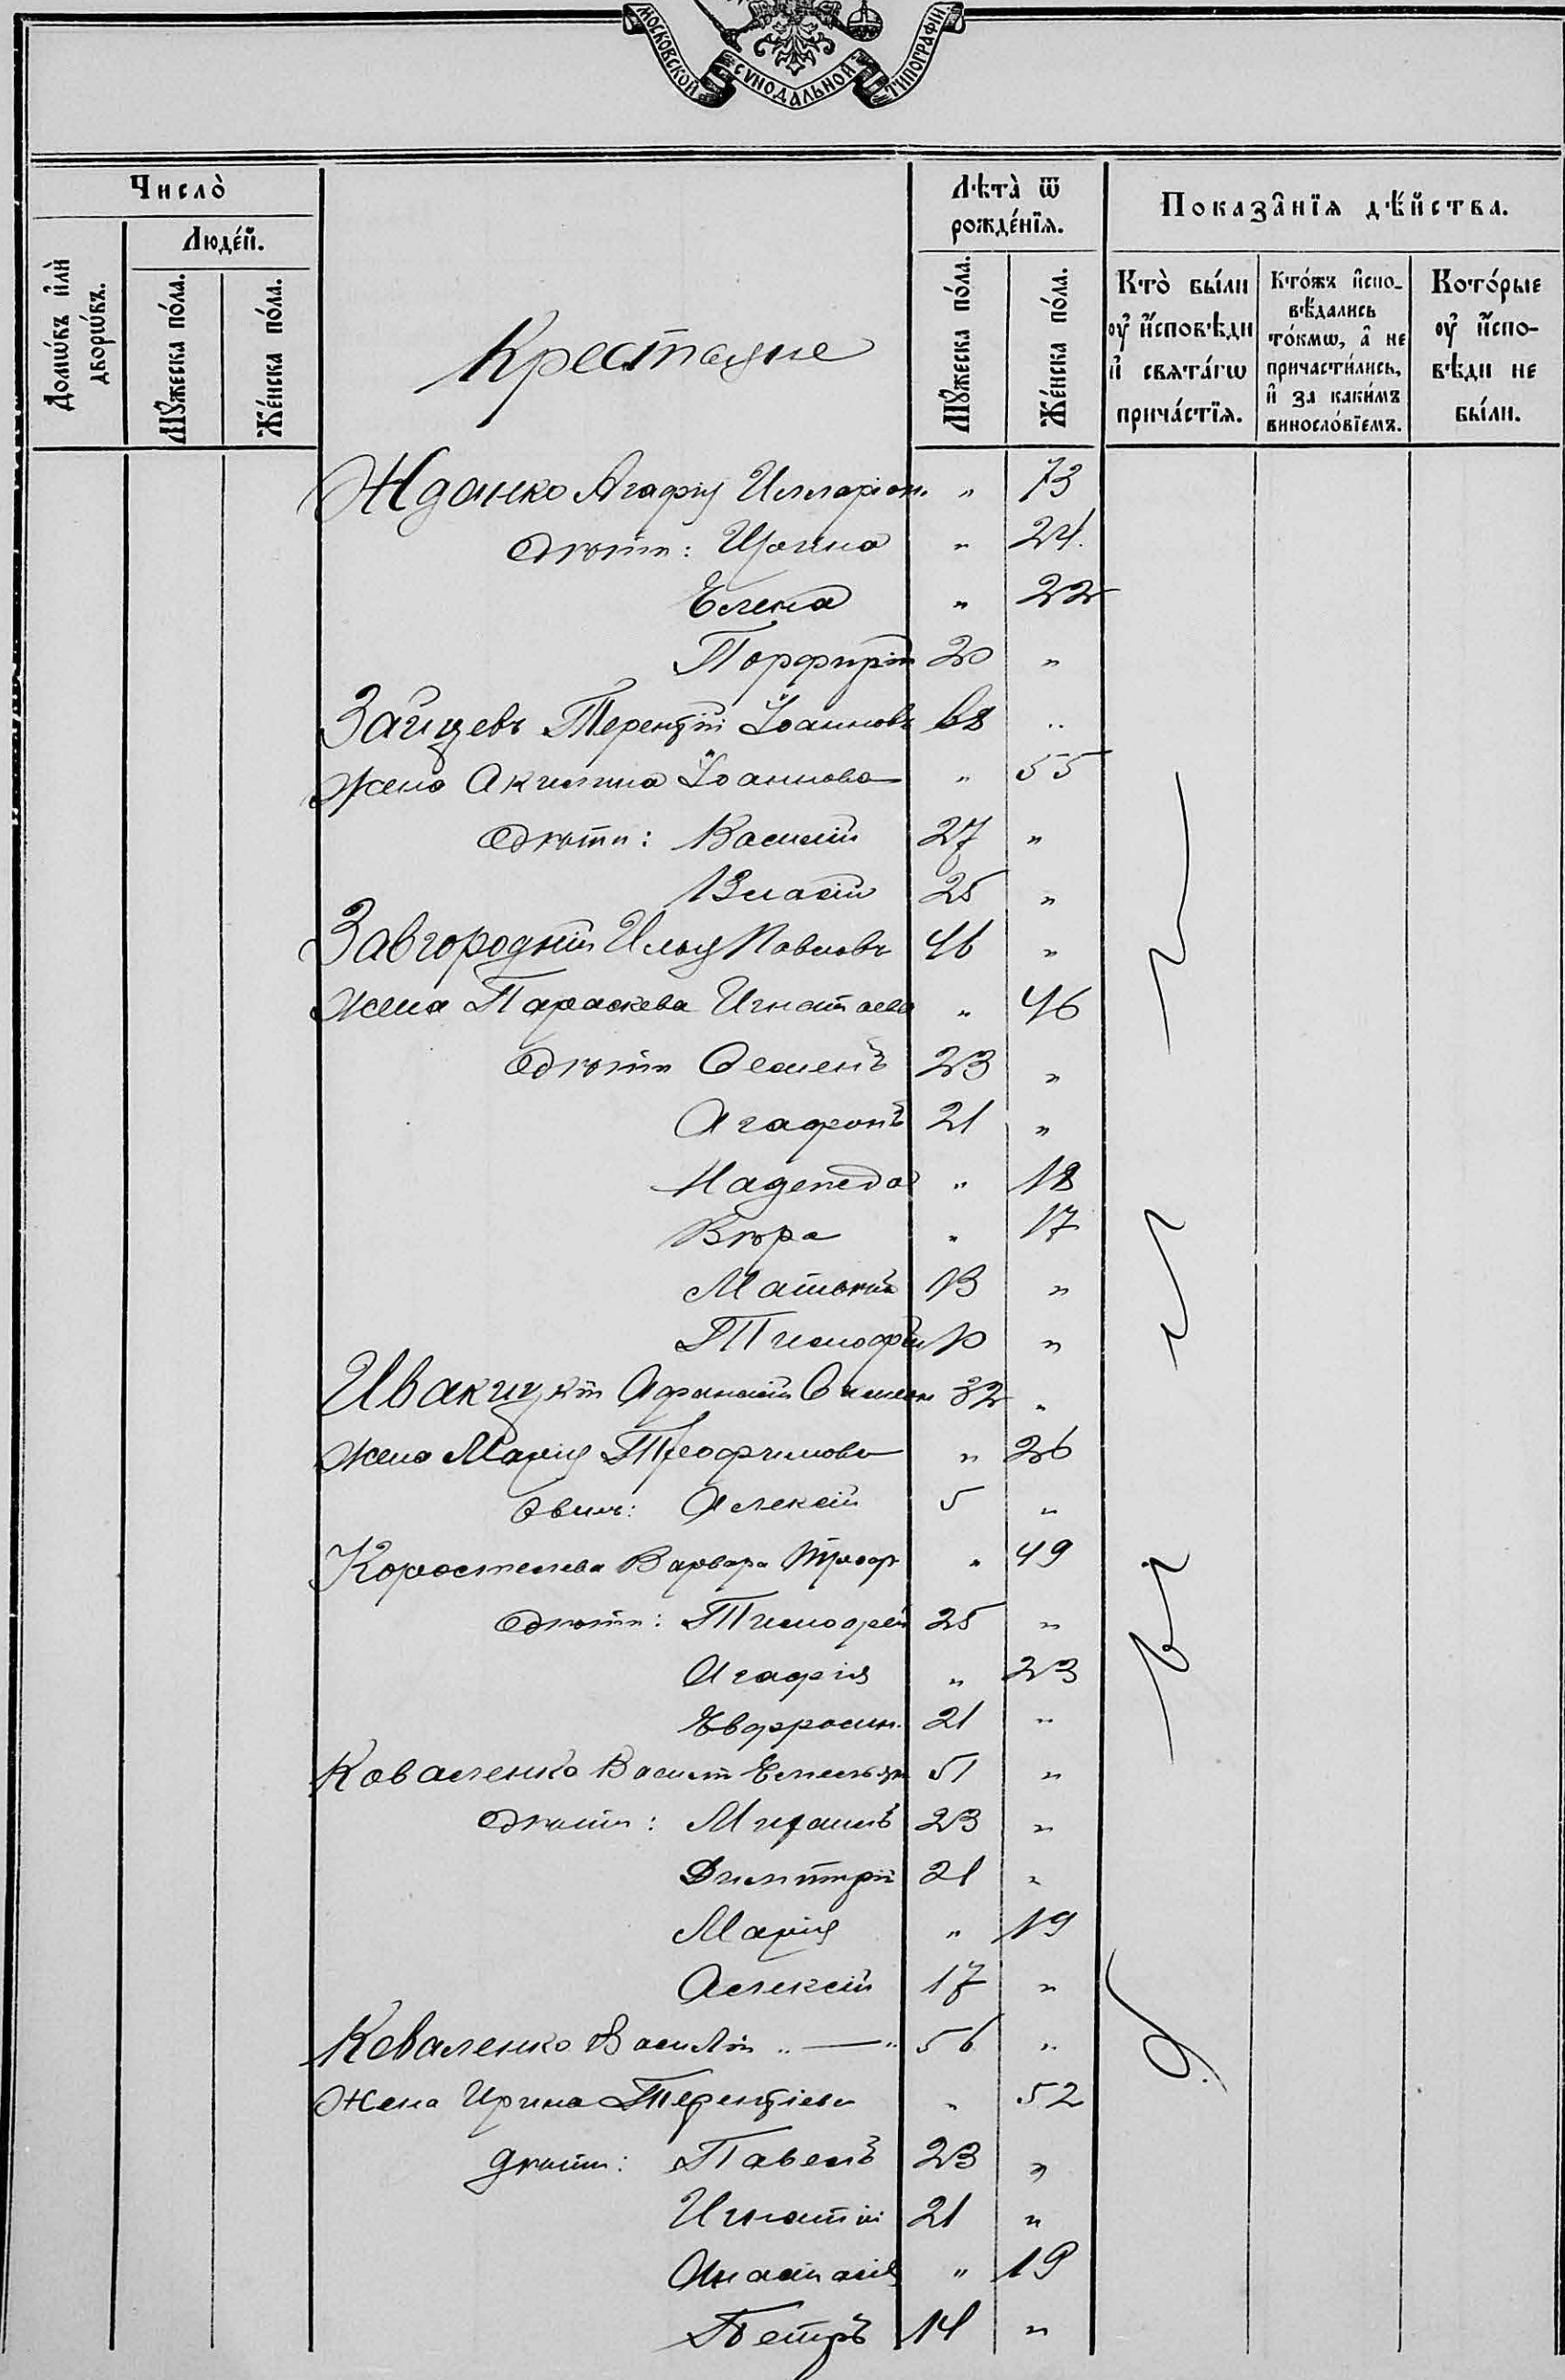 МОСКОВСКОЙ СѴНОДАЛЬНОЙ ТИПОГРАФІИ
Число̀
Людє́й.
Домѡ́въ и҆лѝ дворѡ́въ.
Мꙋ́жеска по́ла.
Же́нска по́ла.
Крестьяне
Лѣта̀ ѿ рожде́нїѧ.
Мꙋ́жеска по́ла.
Же́нска по́ла.
Показа̑нїѧ дѣ́йства.
Кто̀ бы́ли ᲂу҆ и҆́сповѣди и҆ свѧта́гѡ прича́стїѧ.
Кто́жъ и҆спо-вѣ́дались то́кмѡ, а҆ не причасти́лись, и҆ за каки́мъ виносло́вїемъ.
Кото́рые ᲂу҆ и҆́спо-вѣди не бы́ли.
Жданко Агафія Илларіон. " 73
Дѣти: Ирина " 24.
Елена " 22
Порфирій 20 "
Зайцевъ Терентій Іоанновъ 68 "
жена Акилина Іоаннова " 55
Дѣти: Василій 27 "
Власій 25 "
Завгородній Илья Павловъ 46 "
жена Параскева Игнатьева " 46
Дѣти Семенъ 23 "
Агафонъ 21 "
Надежда " 18
Вѣра " 17
Матвѣй 13 "
Тимофей 10 "
Ивакицкій Афанасій Симеон 32 "
жена Марія Трофимова " 26
Сынъ: Алексій 5 "
Коростелева Варвара Троф " 49
Дѣти: Тимофей 25 "
Агафія " 23
Евфросин. 21 "
Коваленко Василій Емельян 51 "
Дѣти: Михаилъ 23 "
Димитрій 21 "
Марія " 19
Алексій 17 "
Коваленко Василій " — " 56 "
Жена Ирина Терентіева " 52
Дѣти: Павелъ 23 "
Игнатій 21 "
Анастасія " 19
Петръ 14 "